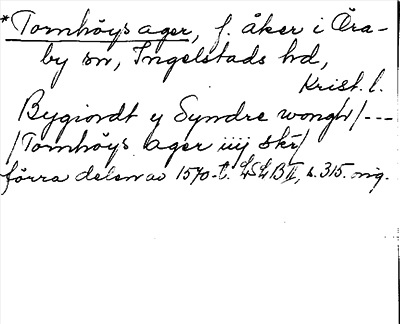 *Tomhöys ager, f. åker i Öra-
by sn, Ingelstads hd,
Krist. l.
Bygiordt y Syndre wongh/---
/Tomhöys ager iiij skr/
förra delen av 1570-t. LSLB II, s. 315. orig.